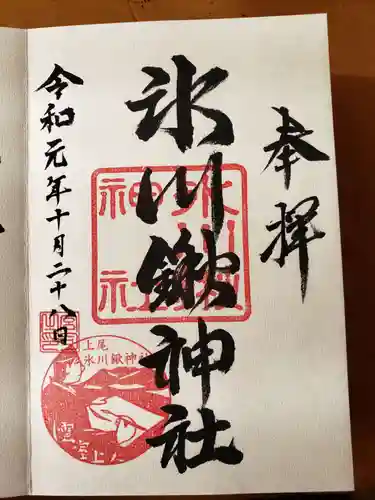 奉拝
氷川鍬神社
令和元年十月二十八日
上尾
氷川鍬神社